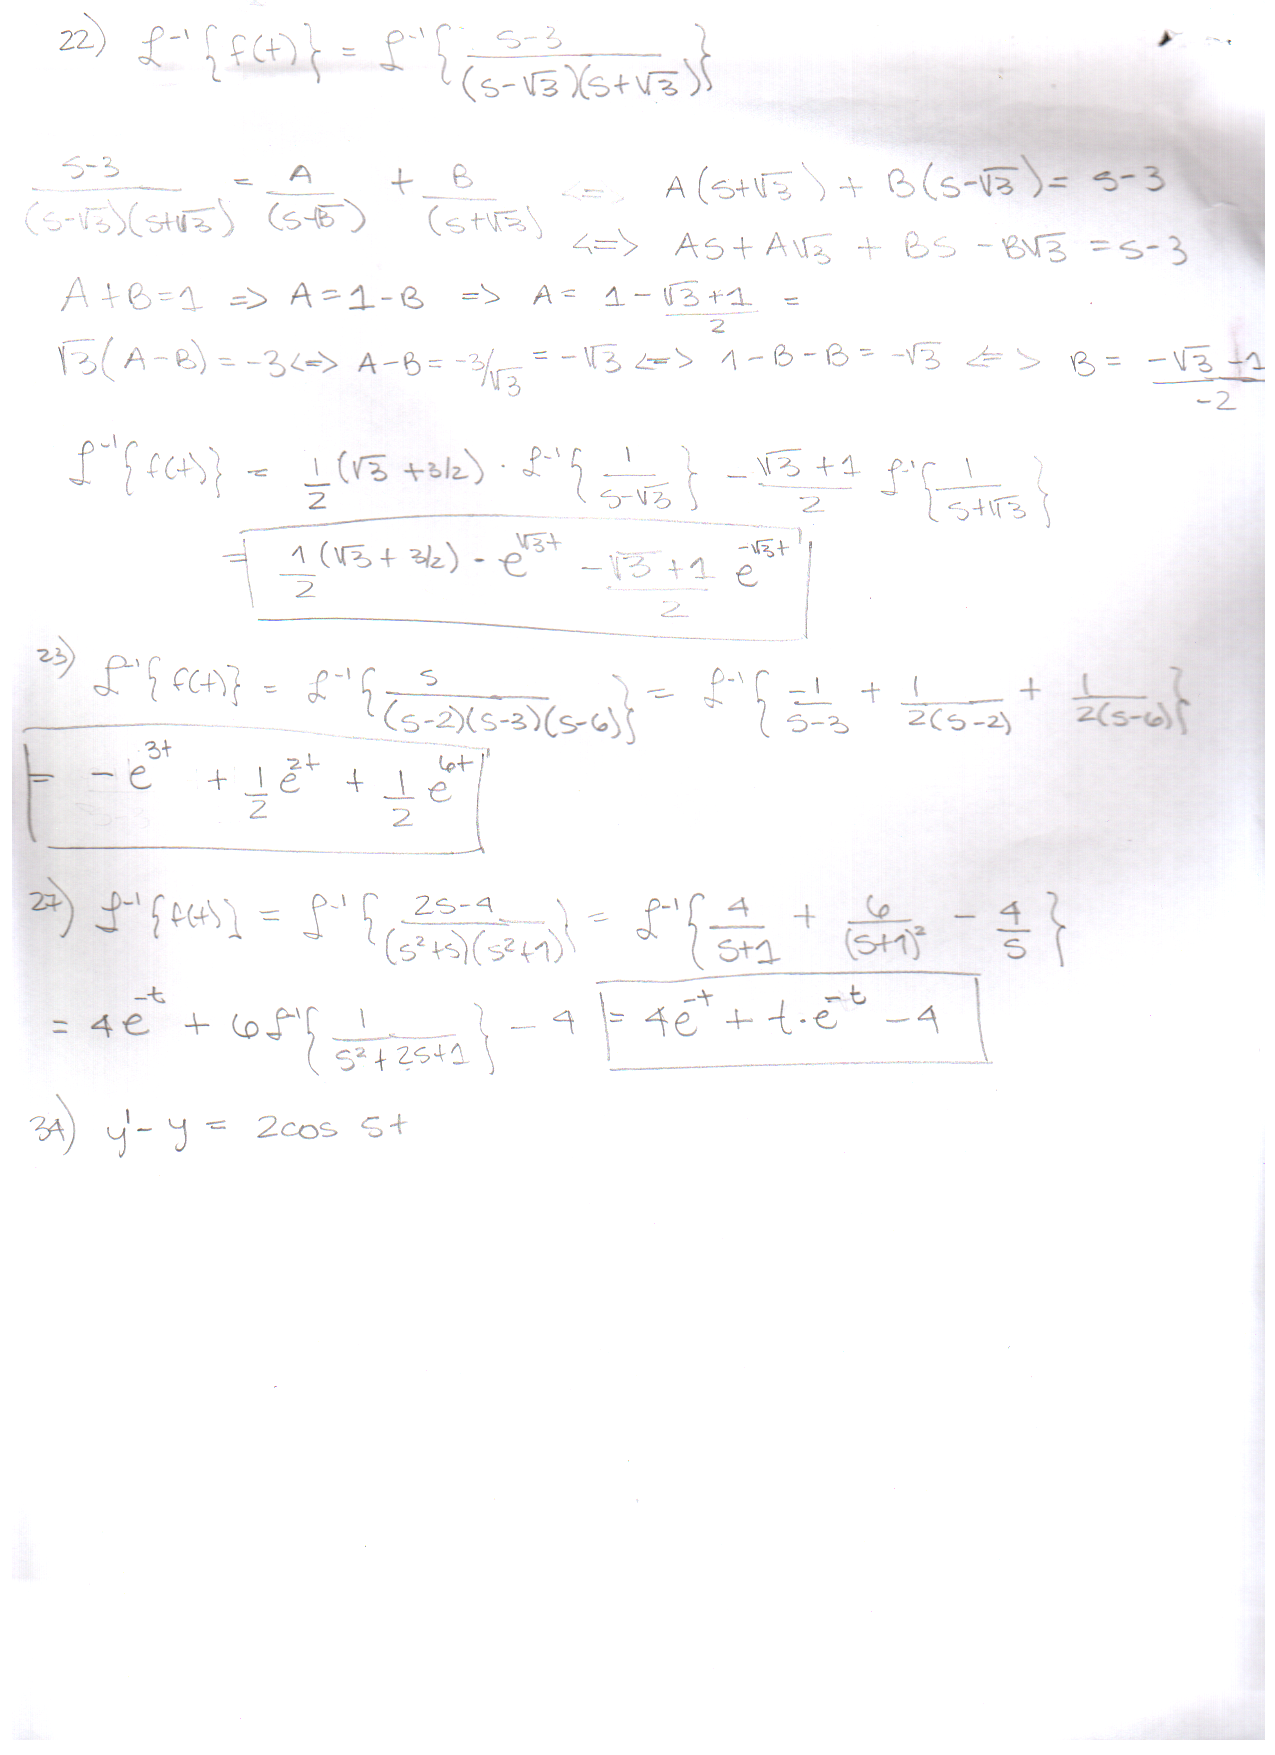 22) ℒ⁻¹{f(t)} = ℒ⁻¹{(s-3)/((s-√3)(s+√3))}
(s-3)/((s-√3)(s+√3)) = A/(s-√3) + B/(s+√3) <=> A(s+√3) + B(s-√3) = s-3
<=> As + A√3 + Bs - B√3 = s-3
A+B=1 => A=1-B => A = 1 - (√3+1)/2 =
√3(A-B) = -3 <=> A-B = -3/√3 = -√3 <=> 1-B-B = -√3 <=> B = (-√3-1)/-2
ℒ⁻¹{f(t)} = 1/2 (√3 + 3/2) · ℒ⁻¹{1/(s-√3)} - (√3+1)/2 ℒ⁻¹{1/(s+√3)}
= 1/2 (√3 + 3/2) · e^(√3t) - (√3+1)/2 e^(-√3t)
23) ℒ⁻¹{f(t)} = ℒ⁻¹{s/((s-2)(s-3)(s-6))} = ℒ⁻¹{-1/(s-3) + 1/(2(s-2)) + 1/(2(s-6))}
= -e^(3t) + 1/2 e^(2t) + 1/2 e^(6t)
27) ℒ⁻¹{f(t)} = ℒ⁻¹{(2s-4)/((s²+s)(s²+1))} = ℒ⁻¹{4/(s+1) + 6/(s+1)² - 4/s}
= 4e^(-t) + 6ℒ⁻¹{1/(s²+2s+1)} - 4 = 4e^(-t) + t·e^(-t) - 4
34) y' - y = 2cos 5t